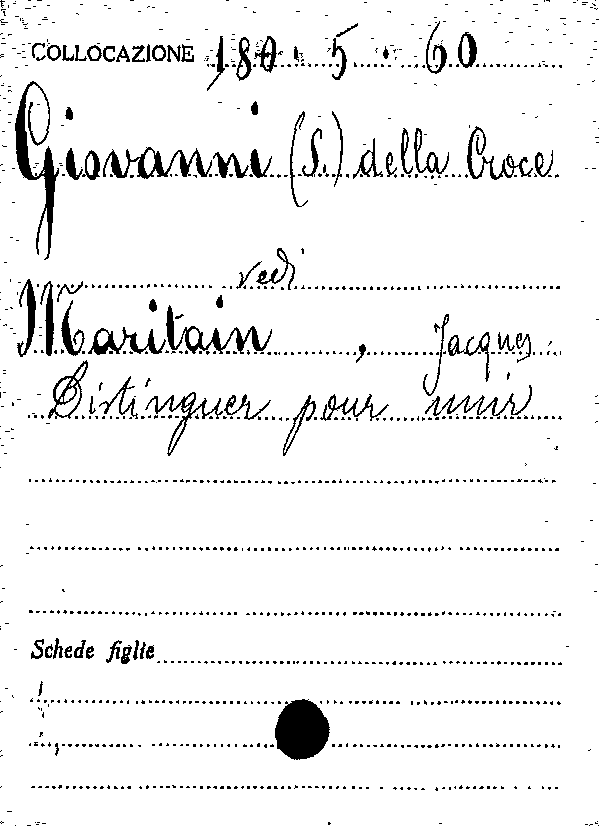 COLLOCAZIONE 180.5.60
Giovanni (S.) della Croce
vedi
Maritain, Jacques:
Distinguer pour unir
Schede figlie